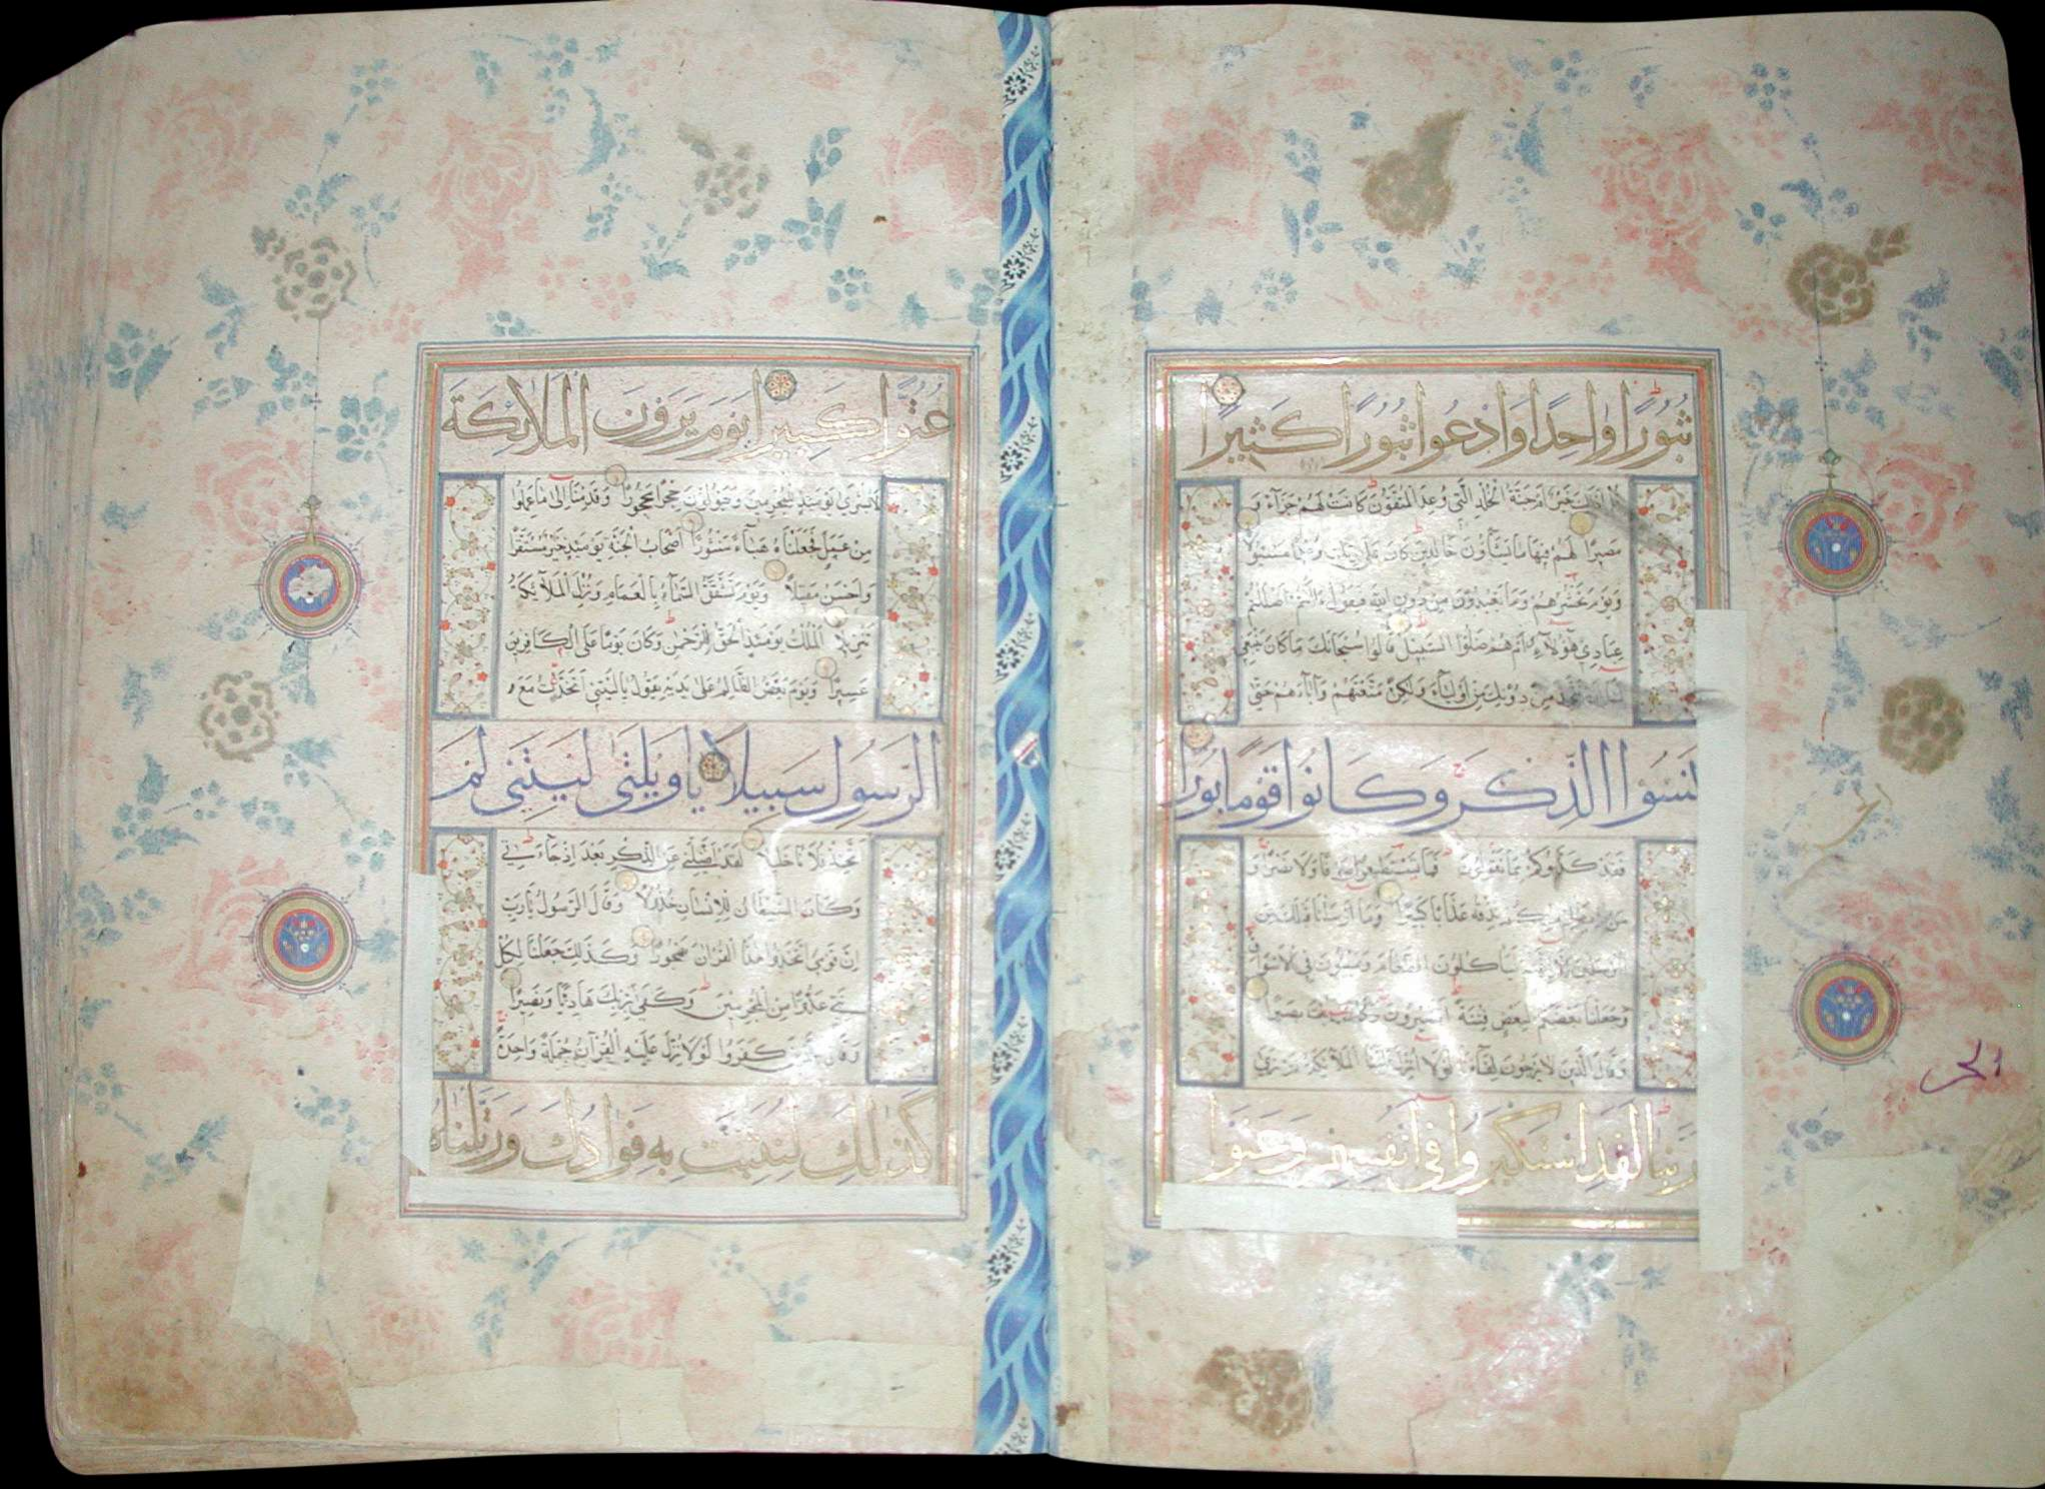 ثُبُورًا وَاحِدًا وَادْعُوا ثُبُورًا كَثِيرًا
قُلْ أَذَلِكَ خَيْرٌ أَمْ جَنَّةُ الْخُلْدِ الَّتِي وُعِدَ الْمُتَّقُونَ كَانَتْ لَهُمْ جَزَاءً وَ
مَصِيرًا لَهُمْ فِيهَا مَا يَشَاؤُنَ خَالِدِينَ كَانَ عَلَى رَبِّكَ وَعْدًا مَسْئُولًا
وَيَوْمَ يَحْشُرُهُمْ وَمَا يَعْبُدُونَ مِنْ دُونِ اللَّهِ فَيَقُولُ ءَأَنْتُمْ أَضْلَلْتُمْ
عِبَادِي هَؤُلَاءِ أَمْ هُمْ ضَلُّوا السَّبِيلَ قَالُوا سُبْحَانَكَ مَا كَانَ يَنْبَغِي
لَنَا أَنْ نَتَّخِذَ مِنْ دُونِكَ مِنْ أَوْلِيَاءَ وَلَكِنْ مَتَّعْتَهُمْ وَآبَاءَهُمْ حَتَّى
نَسُوا الذِّكْرَ وَكَانُوا قَوْمًا بُورًا
فَقَدْ كَذَّبُوكُمْ بِمَا تَقُولُونَ فَمَا تَسْتَطِيعُونَ صَرْفًا وَلَا نَصْرًا وَ
مَنْ يَظْلِمْ مِنْكُمْ نُذِقْهُ عَذَابًا كَبِيرًا وَمَا أَرْسَلْنَا قَبْلَكَ مِنَ
الْمُرْسَلِينَ إِلَّا إِنَّهُمْ لَيَأْكُلُونَ الطَّعَامَ وَيَمْشُونَ فِي الْأَسْوَاقِ
وَجَعَلْنَا بَعْضَكُمْ لِبَعْضٍ فِتْنَةً أَتَصْبِرُونَ وَكَانَ رَبُّكَ بَصِيرًا
وَقَالَ الَّذِينَ لَا يَرْجُونَ لِقَاءَنَا لَوْلَا أُنْزِلَ عَلَيْنَا الْمَلَائِكَةُ أَوْ نَرَى
رَبَّنَا لَقَدِ اسْتَكْبَرُوا فِي أَنْفُسِهِمْ وَعَتَوْا
عُتُوًّا كَبِيرًا يَوْمَ يَرَوْنَ الْمَلَائِكَةَ
لَا بُشْرَى يَوْمَئِذٍ لِلْمُجْرِمِينَ وَيَقُولُونَ حِجْرًا مَحْجُورًا وَقَدِمْنَا إِلَى مَا عَمِلُوا
مِنْ عَمَلٍ فَجَعَلْنَاهُ هَبَاءً مَنْثُورًا أَصْحَابُ الْجَنَّةِ يَوْمَئِذٍ خَيْرٌ مُسْتَقَرًّا
وَأَحْسَنُ مَقِيلًا وَيَوْمَ تَشَقَّقُ السَّمَاءُ بِالْغَمَامِ وَنُزِّلَ الْمَلَائِكَةُ
تَنْزِيلًا الْمُلْكُ يَوْمَئِذٍ الْحَقُّ لِلرَّحْمَنِ وَكَانَ يَوْمًا عَلَى الْكَافِرِينَ
عَسِيرًا وَيَوْمَ يَعَضُّ الظَّالِمُ عَلَى يَدَيْهِ يَقُولُ يَا لَيْتَنِي اتَّخَذْتُ مَعَ
الرَّسُولِ سَبِيلًا يَا وَيْلَتَى لَيْتَنِي لَمْ
أَتَّخِذْ فُلَانًا خَلِيلًا لَقَدْ أَضَلَّنِي عَنِ الذِّكْرِ بَعْدَ إِذْ جَاءَنِي
وَكَانَ الشَّيْطَانُ لِلْإِنْسَانِ خَذُولًا وَقَالَ الرَّسُولُ يَا رَبِّ
إِنَّ قَوْمِي اتَّخَذُوا هَذَا الْقُرْآنَ مَهْجُورًا وَكَذَلِكَ جَعَلْنَا لِكُلِّ
نَبِيٍّ عَدُوًّا مِنَ الْمُجْرِمِينَ وَكَفَى بِرَبِّكَ هَادِيًا وَنَصِيرًا
وَقَالَ الَّذِينَ كَفَرُوا لَوْلَا نُزِّلَ عَلَيْهِ الْقُرْآنُ جُمْلَةً وَاحِدَةً
كَذَلِكَ لِنُثَبِّتَ بِهِ فُؤَادَكَ وَرَتَّلْنَاهُ